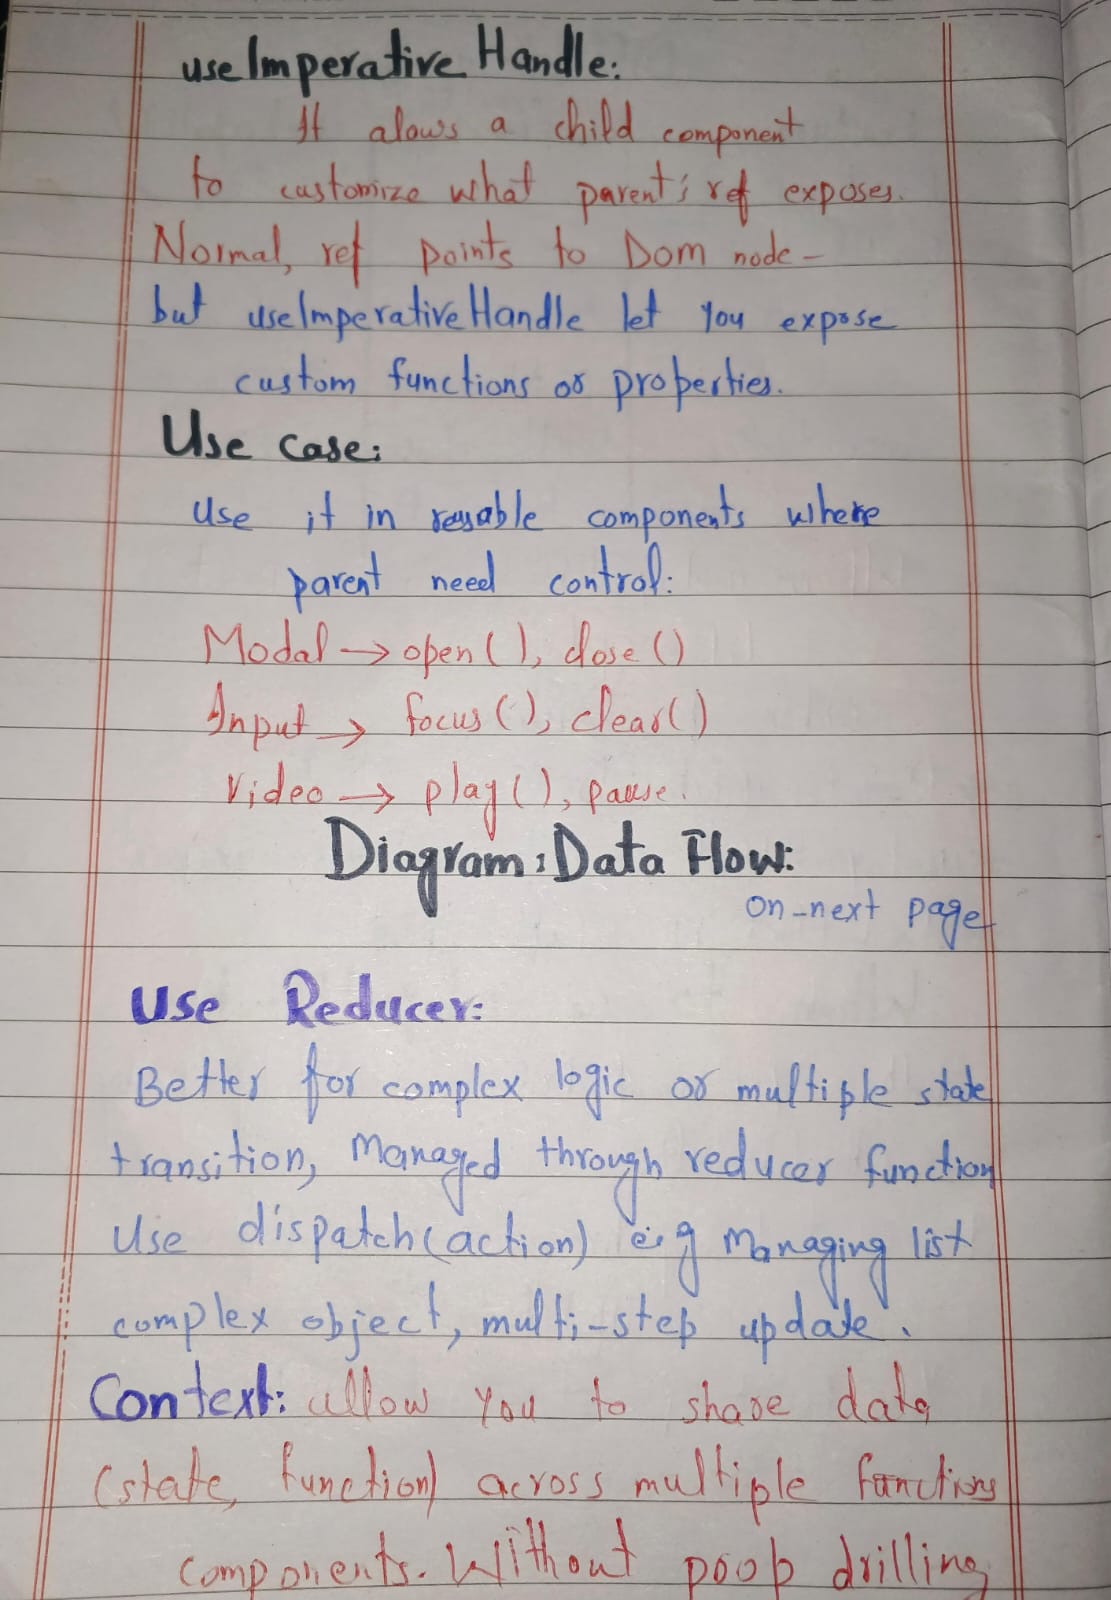 useImperative Handle:
It alows a child component
to customize what parent's ref exposes.
Normal, ref points to Dom node -
but useImperativeHandle let you expose
custom functions or properties.
Use case:
Use it in resuable components where
parent need control:
Modal → open(), close()
Input → focus(), clear()
Video → play(), pause.
Diagram: Data Flow:
on-next page
Use Reducer:
Better for complex logic or multiple state
transition, Managed through reducer function
Use dispatch(action) e.g Managing list
complex object, multi-step update.
Context: allow you to share data
(state, function) across multiple functions
components. Without poop drilling